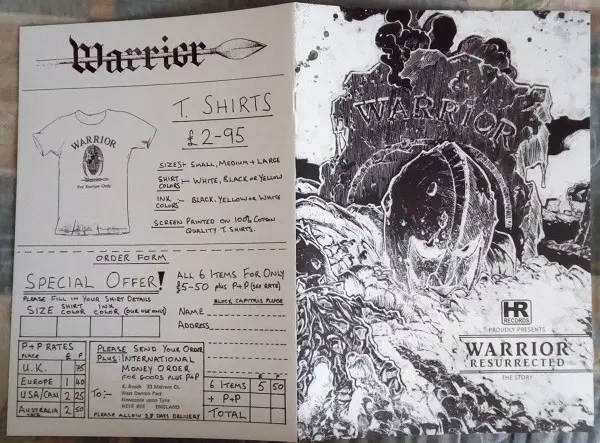 Warrior
T. SHIRTS
£2-95
WARRIOR
For Europe Only
SIZES:- SMALL, MEDIUM + LARGE
SHIRT COLORS :- WHITE, BLACK OR YELLOW
INK COLORS :- BLACK, YELLOW OR WHITE
SCREEN PRINTED ON 100% COTTON
QUALITY T. SHIRTS.
ORDER FORM
SPECIAL OFFER!
ALL 6 ITEMS FOR ONLY
£5-50 plus P+P (SEE RATE)
PLEASE FILL IN YOUR SHIRT DETAILS
SIZE SHIRT COLOR INK COLOR (OUR USE ONLY)
BLOCK CAPITALS PLEASE
NAME
ADDRESS
P+P RATES
PLACE £ P
U.K. 75
EUROPE 1 40
USA/CAN 2 25
AUSTRALIA 2 50
PLEASE SEND YOUR ORDER
PLUS: INTERNATIONAL
MONEY ORDER
FOR GOODS PLUS P+P
TO:-
K. Booth 33 Malvern Ct.
West Denton Park
Newcastle upon Tyne
ENGLAND
PLEASE ALLOW 28 DAYS DELIVERY
£ P
6 ITEMS 5 50
+ P+P
TOTAL
WARRIOR
HR
RECORDS
PROUDLY PRESENTS
WARRIOR
RESURRECTED
THE STORY